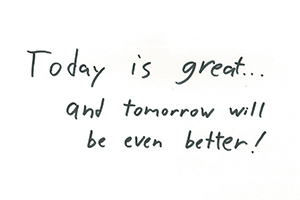 Today is great...
and tomorrow will
be even better!